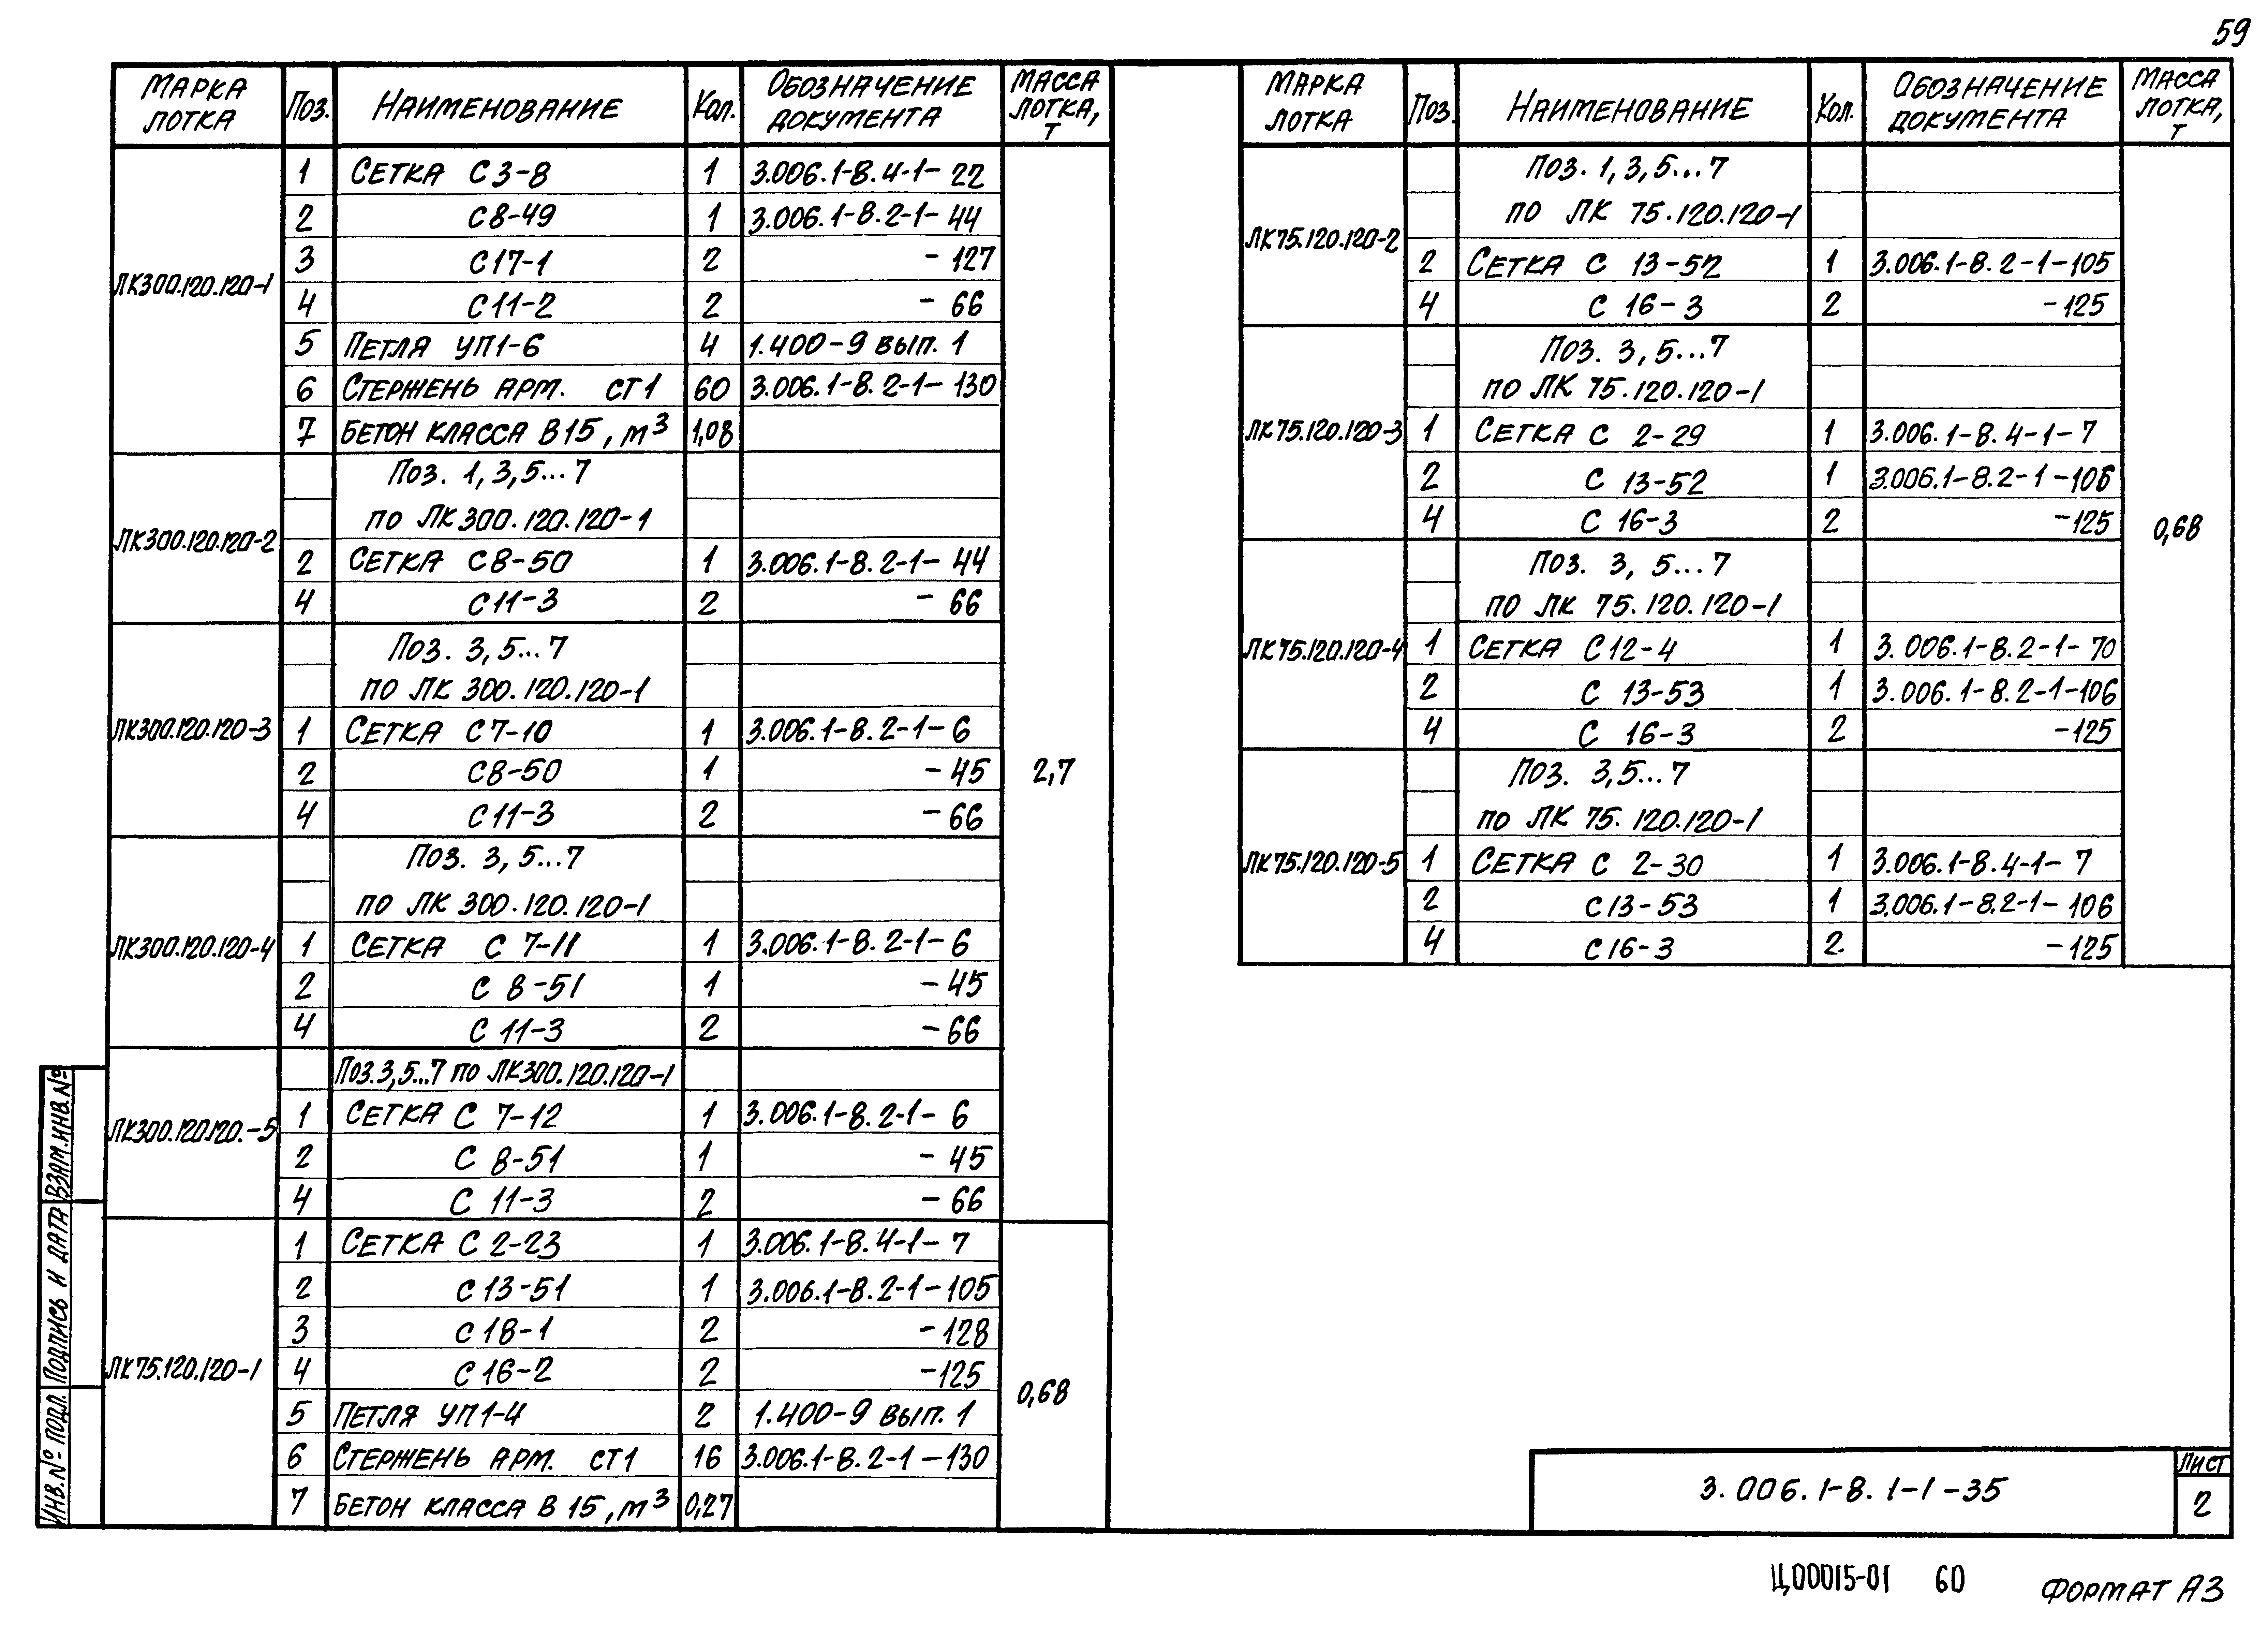 59
МАРКА ЛОТКА | ПОЗ. | НАИМЕНОВАНИЕ | КОЛ. | ОБОЗНАЧЕНИЕ ДОКУМЕНТА | МАССА ЛОТКА, Т
ЛК300.120.120-1
1 СЕТКА С3-8 1 3.006.1-8.4-1-22
2 С8-49 1 3.006.1-8.2-1-44
3 С17-1 2 -127
4 С11-2 2 -66
5 ПЕТЛЯ УП1-6 4 1.400-9 ВЫП. 1
6 СТЕРЖЕНЬ АРМ. СТ1 60 3.006.1-8.2-1-130
7 БЕТОН КЛАССА В15, М³ 1,08
ЛК300.120.120-2
ПОЗ. 1,3,5...7
ПО ЛК300.120.120-1
2 СЕТКА С8-50 1 3.006.1-8.2-1-44
4 С11-3 2 -66
ЛК300.120.120-3
ПОЗ. 3,5...7
ПО ЛК 300.120.120-1
1 СЕТКА С7-10 1 3.006.1-8.2-1-6
2 С8-50 1 -45
4 С11-3 2 -66
2,7
ЛК300.120.120-4
ПОЗ. 3, 5...7
ПО ЛК 300.120.120-1
1 СЕТКА С 7-11 1 3.006.1-8.2-1-6
2 С 8-51 1 -45
4 С 11-3 2 -66
ЛК300.120120.-5
ПОЗ.3,5...7 ПО ЛК300.120.120-1
1 СЕТКА С 7-12 1 3.006.1-8.2-1-6
2 С 8-51 1 -45
4 С 11-3 2 -66
ЛК75.120.120-1
1 СЕТКА С 2-23 1 3.006.1-8.4-1-7
2 С13-51 1 3.006.1-8.2-1-105
3 С18-1 2 -128
4 С16-2 2 -125
5 ПЕТЛЯ УП1-4 2 1.400-9 ВЫП. 1
6 СТЕРЖЕНЬ АРМ. СТ1 16 3.006.1-8.2-1-130
7 БЕТОН КЛАССА В 15, М³ 0,27
0,68
МАРКА ЛОТКА | ПОЗ. | НАИМЕНОВАНИЕ | КОЛ. | ОБОЗНАЧЕНИЕ ДОКУМЕНТА | МАССА ЛОТКА, Т
ЛК75.120.120-2
ПОЗ. 1,3,5...7
ПО ЛК 75.120.120-1
2 СЕТКА С 13-52 1 3.006.1-8.2-1-105
4 С 16-3 2 -125
ЛК75.120.120-3
ПОЗ. 3,5...7
ПО ЛК 75.120.120-1
1 СЕТКА С 2-29 1 3.006.1-8.4-1-7
2 С 13-52 1 3.006.1-8.2-1-106
4 С 16-3 2 -125
0,68
ЛК75.120.120-4
ПОЗ. 3, 5...7
ПО ЛК 75.120.120-1
1 СЕТКА С12-4 1 3.006.1-8.2-1-70
2 С 13-53 1 3.006.1-8.2-1-106
4 С 16-3 2 -125
ЛК75.120.120-5
ПОЗ. 3,5...7
ПО ЛК 75.120.120-1
1 СЕТКА С 2-30 1 3.006.1-8.4-1-7
2 С13-53 1 3.006.1-8.2-1-106
4 С16-3 2. -125
ИНВ.№ ПОДЛ. ПОДПИСЬ И ДАТА ВЗАМ.ИНВ.№
3.006.1-8.1-1-35
ЛИСТ
2
Ц00015-01 60
ФОРМАТ А3